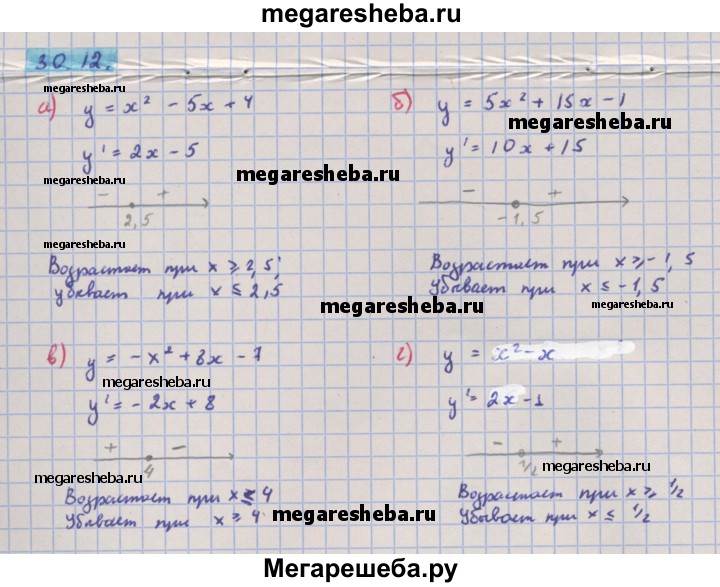 megaresheba.ru
30.12.
а) y = x² - 5x + 4
megaresheba.ru
y' = 2x - 5
megaresheba.ru
- +
2,5
megaresheba.ru
Возрастает при x ≥ 2,5;
убывает при x ≤ 2,5
б) y = 5x² + 15x - 1
megaresheba.ru
y' = 10x + 15
megaresheba.ru
- +
-1,5
Возрастает при x ≥ -1,5
Убывает при x ≤ -1,5
megaresheba.ru
megaresheba.ru
в) y = -x² + 8x - 7
megaresheba.ru
y' = -2x + 8
+ -
4
megaresheba.ru
Возрастает при x ≤ 4
Убывает при x ≥ 4
megaresheba.ru
г) y = x² - x
y' = 2x - 1
- +
1/2
megaresheba.ru
Возрастает при x ≥ 1/2
Убывает при x ≤ 1/2
megaresheba.ru
Мегарешеба.ру